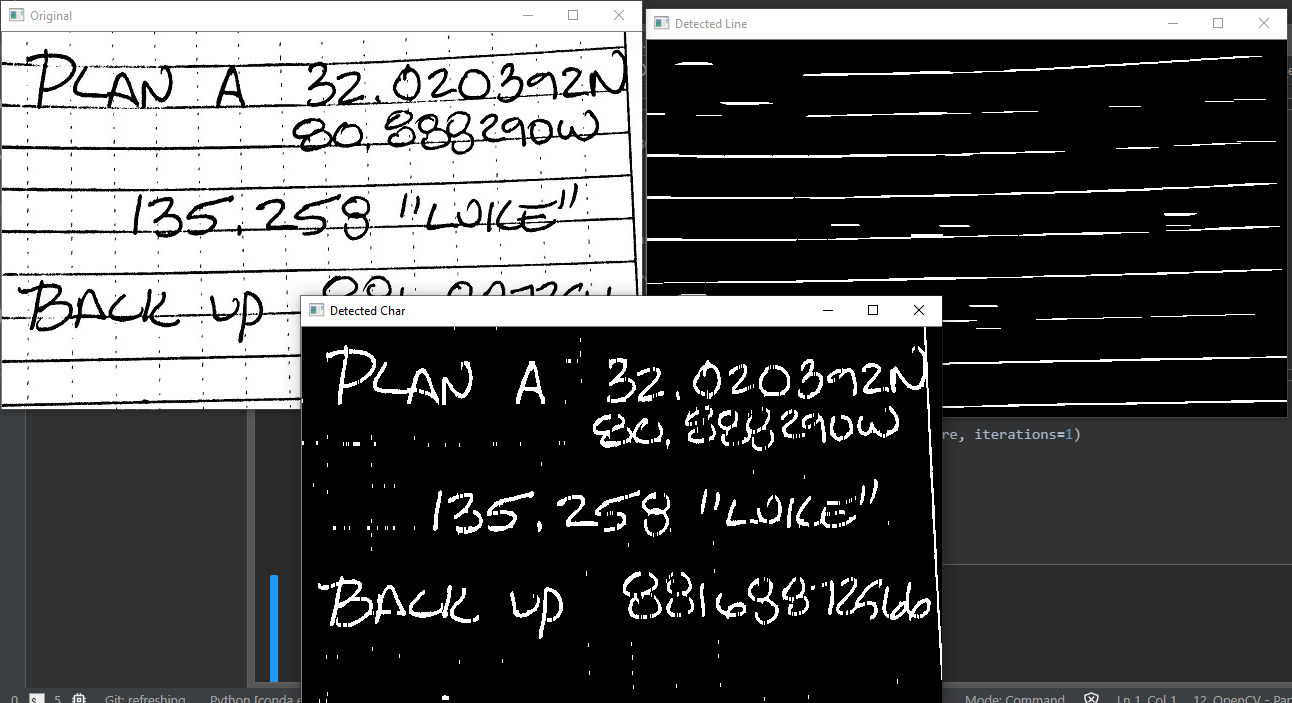 Original
PLAN A 32.020392N
80.888290W
135.258 "LUKE"
BACK UP
Detected Line
Detected Char
PLAN A 32.020392N
80.888290W
135.258 "LUKE"
BACK UP 88168872566
re, iterations=1)
0 5 Git: refreshing Python [conda e
Mode: Command Ln 1, Col 1 12_OpenCV - Par